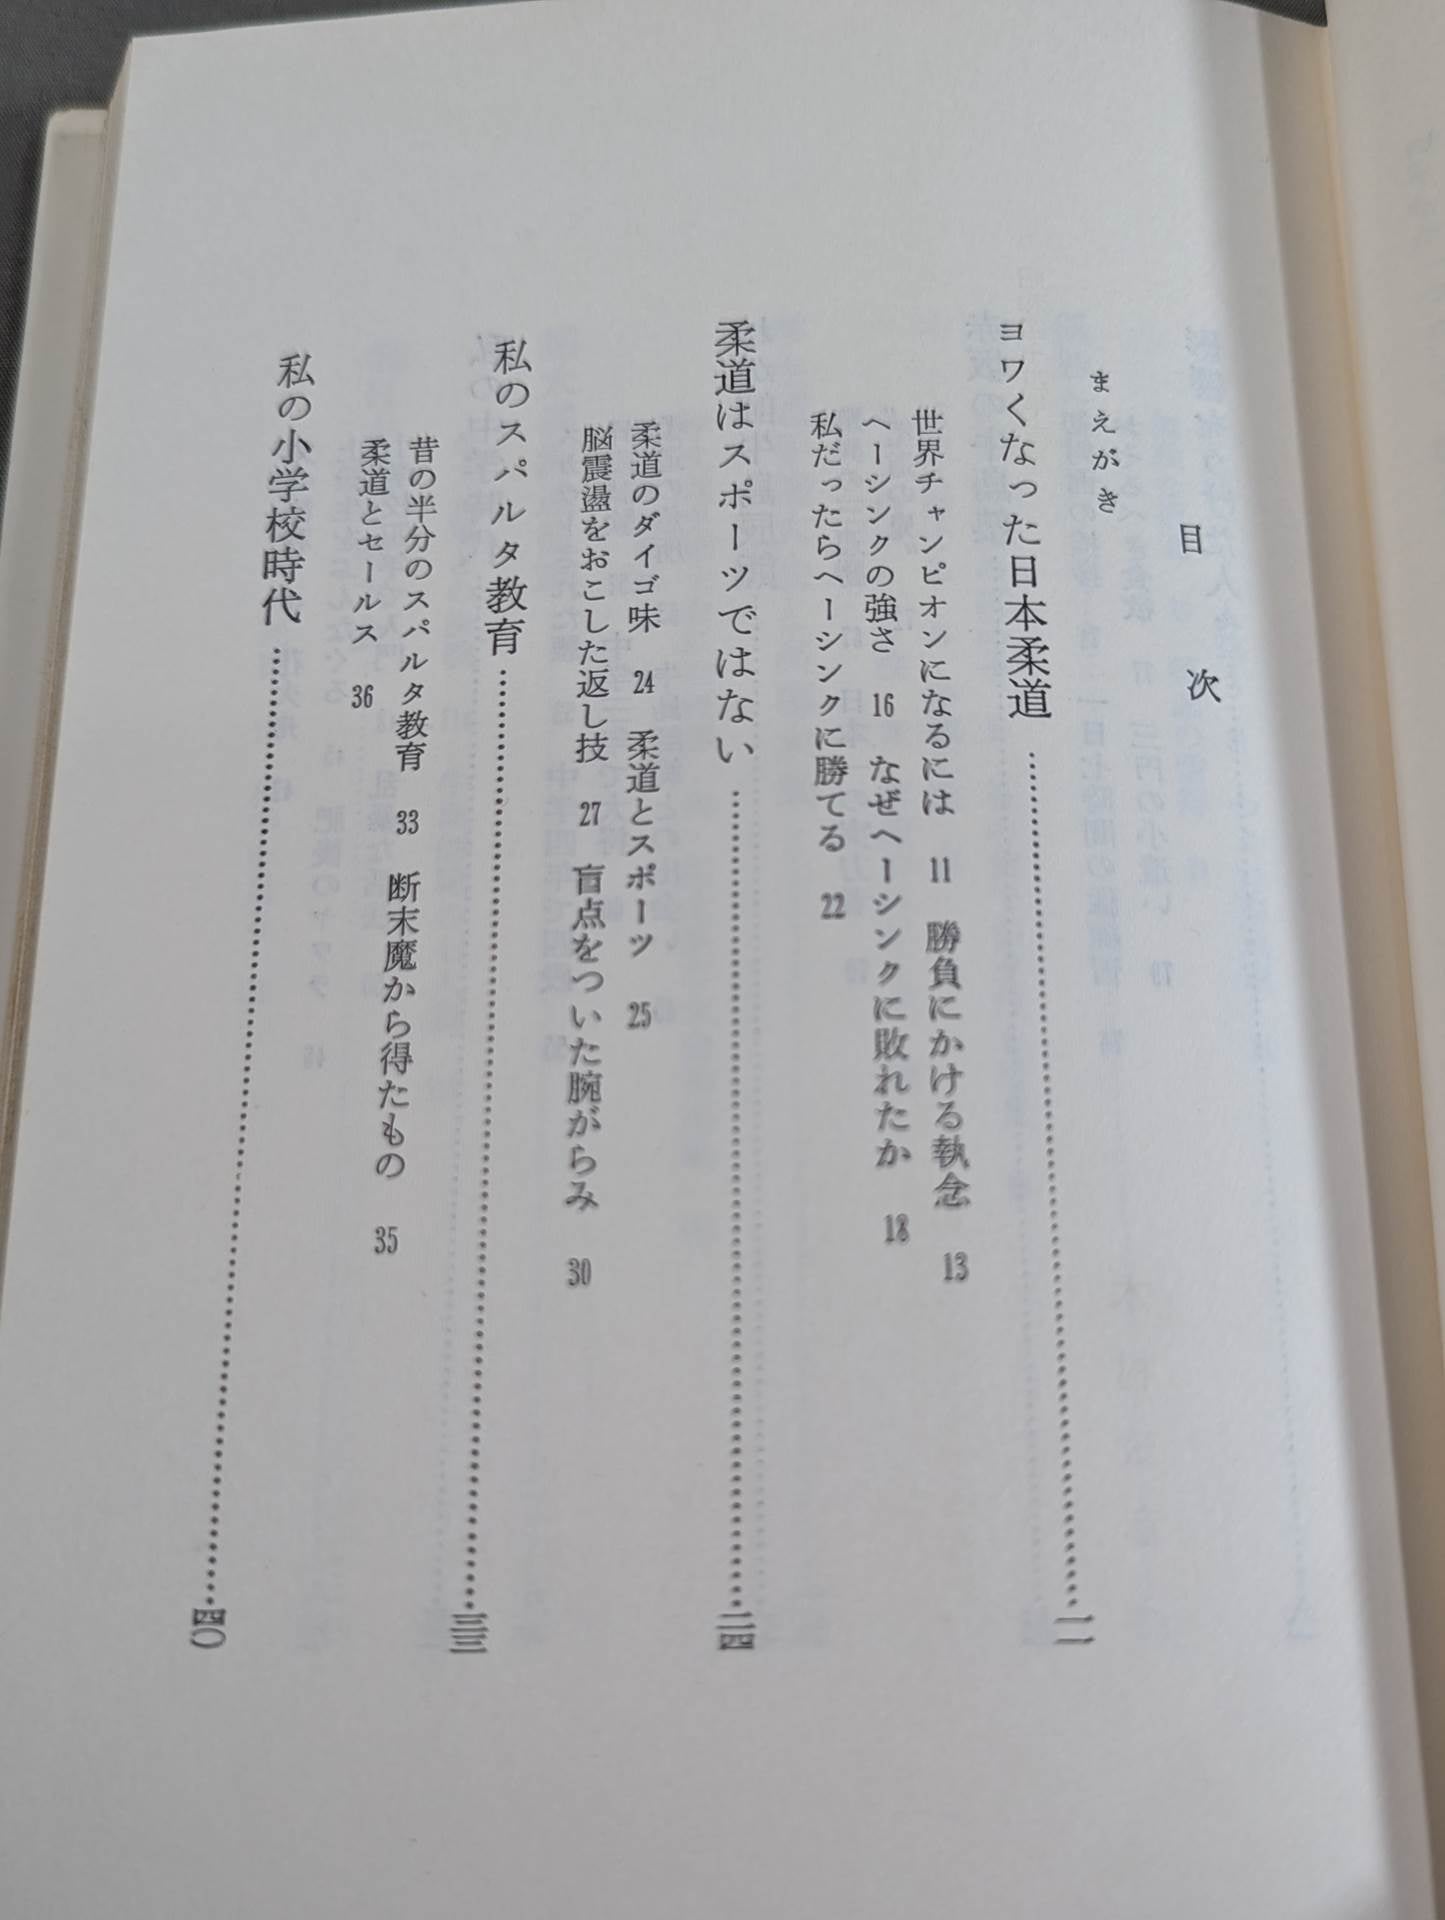 目次
まえがき
ヨワくなった日本柔道……………………一一
世界チャンピオンになるには 11 勝負にかける執念 13
ヘーシンクの強さ 16 なぜヘーシンクに敗れたか 18
私だったらヘーシンクに勝てる 22
柔道はスポーツではない……………………二四
柔道のダイゴ味 24 柔道とスポーツ 25
脳震盪をおこした返し技 27 盲点をついた腕がらみ 30
私のスパルタ教育……………………三三
昔の半分のスパルタ教育 33 断末魔から得たもの 35
柔道とセールス 36
私の小学校時代……………………四〇